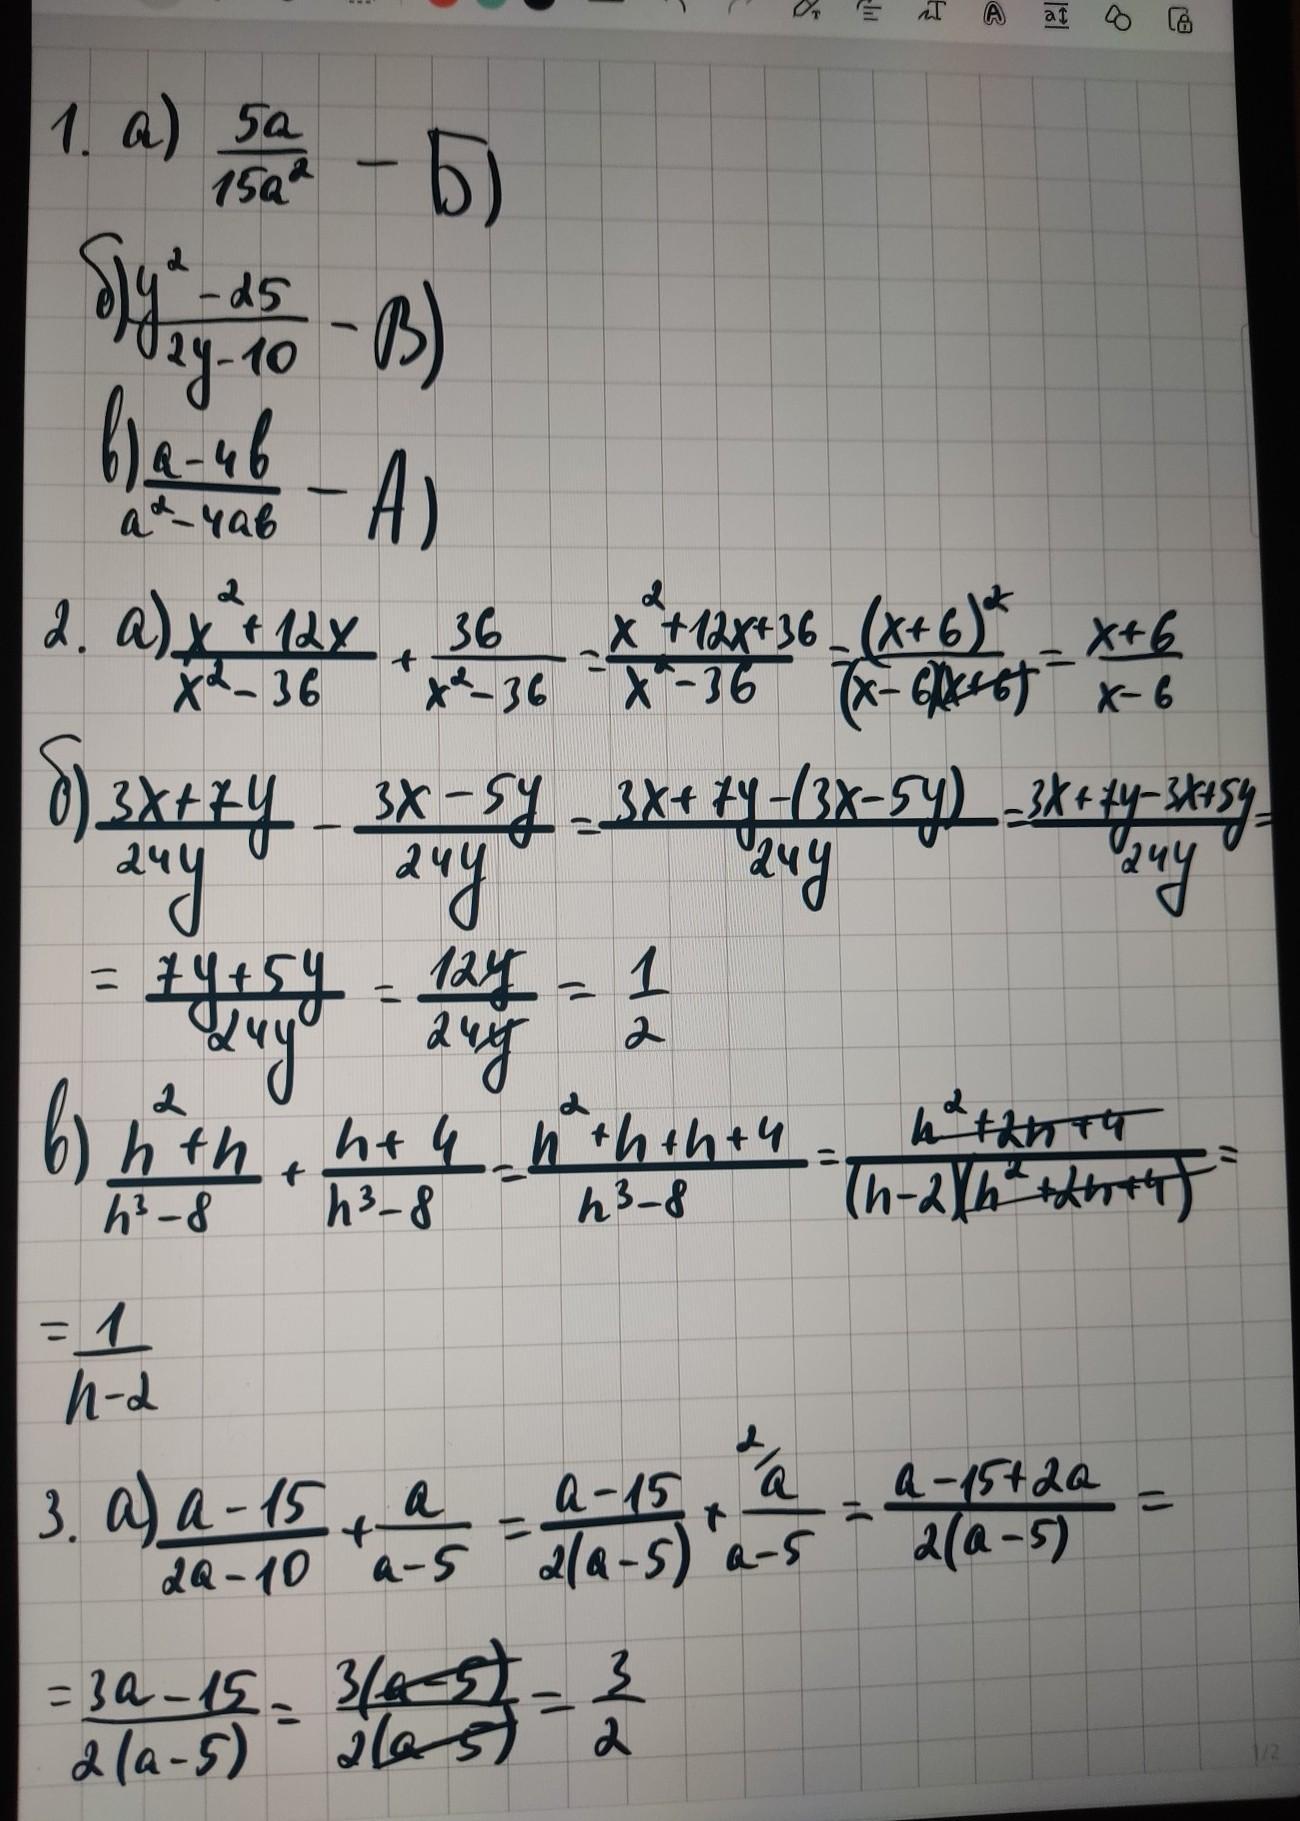 1. а) 5a/15a² – Б)
б) y² - 25/2y - 10 – В)
в) a - 4b/a² - 4ab – А)
2. а) x² + 12x/x² - 36 + 36/x² - 36 = x² + 12x + 36/x² - 36 = (x + 6)²/(x - 6)(x + 6) = x + 6/x - 6
б) 3x + 7y/24y - 3x - 5y/24y = 3x + 7y - (3x - 5y)/24y = 3x + 7y - 3x + 5y/24y =
= 7y + 5y/24y = 12y/24y = 1/2
в) n² + n/n³ - 8 + n + 4/n³ - 8 = n² + n + n + 4/n³ - 8 = n² + 2n + 4/(n - 2)(n² + 2n + 4) =
= 1/n - 2
3. а) a - 15/2a - 10 + a/a - 5 = a - 15/2(a - 5) + 2/a/a - 5 = a - 15 + 2a/2(a - 5) =
= 3a - 15/2(a - 5) = 3(a - 5)/2(a - 5) = 3/2
1/2